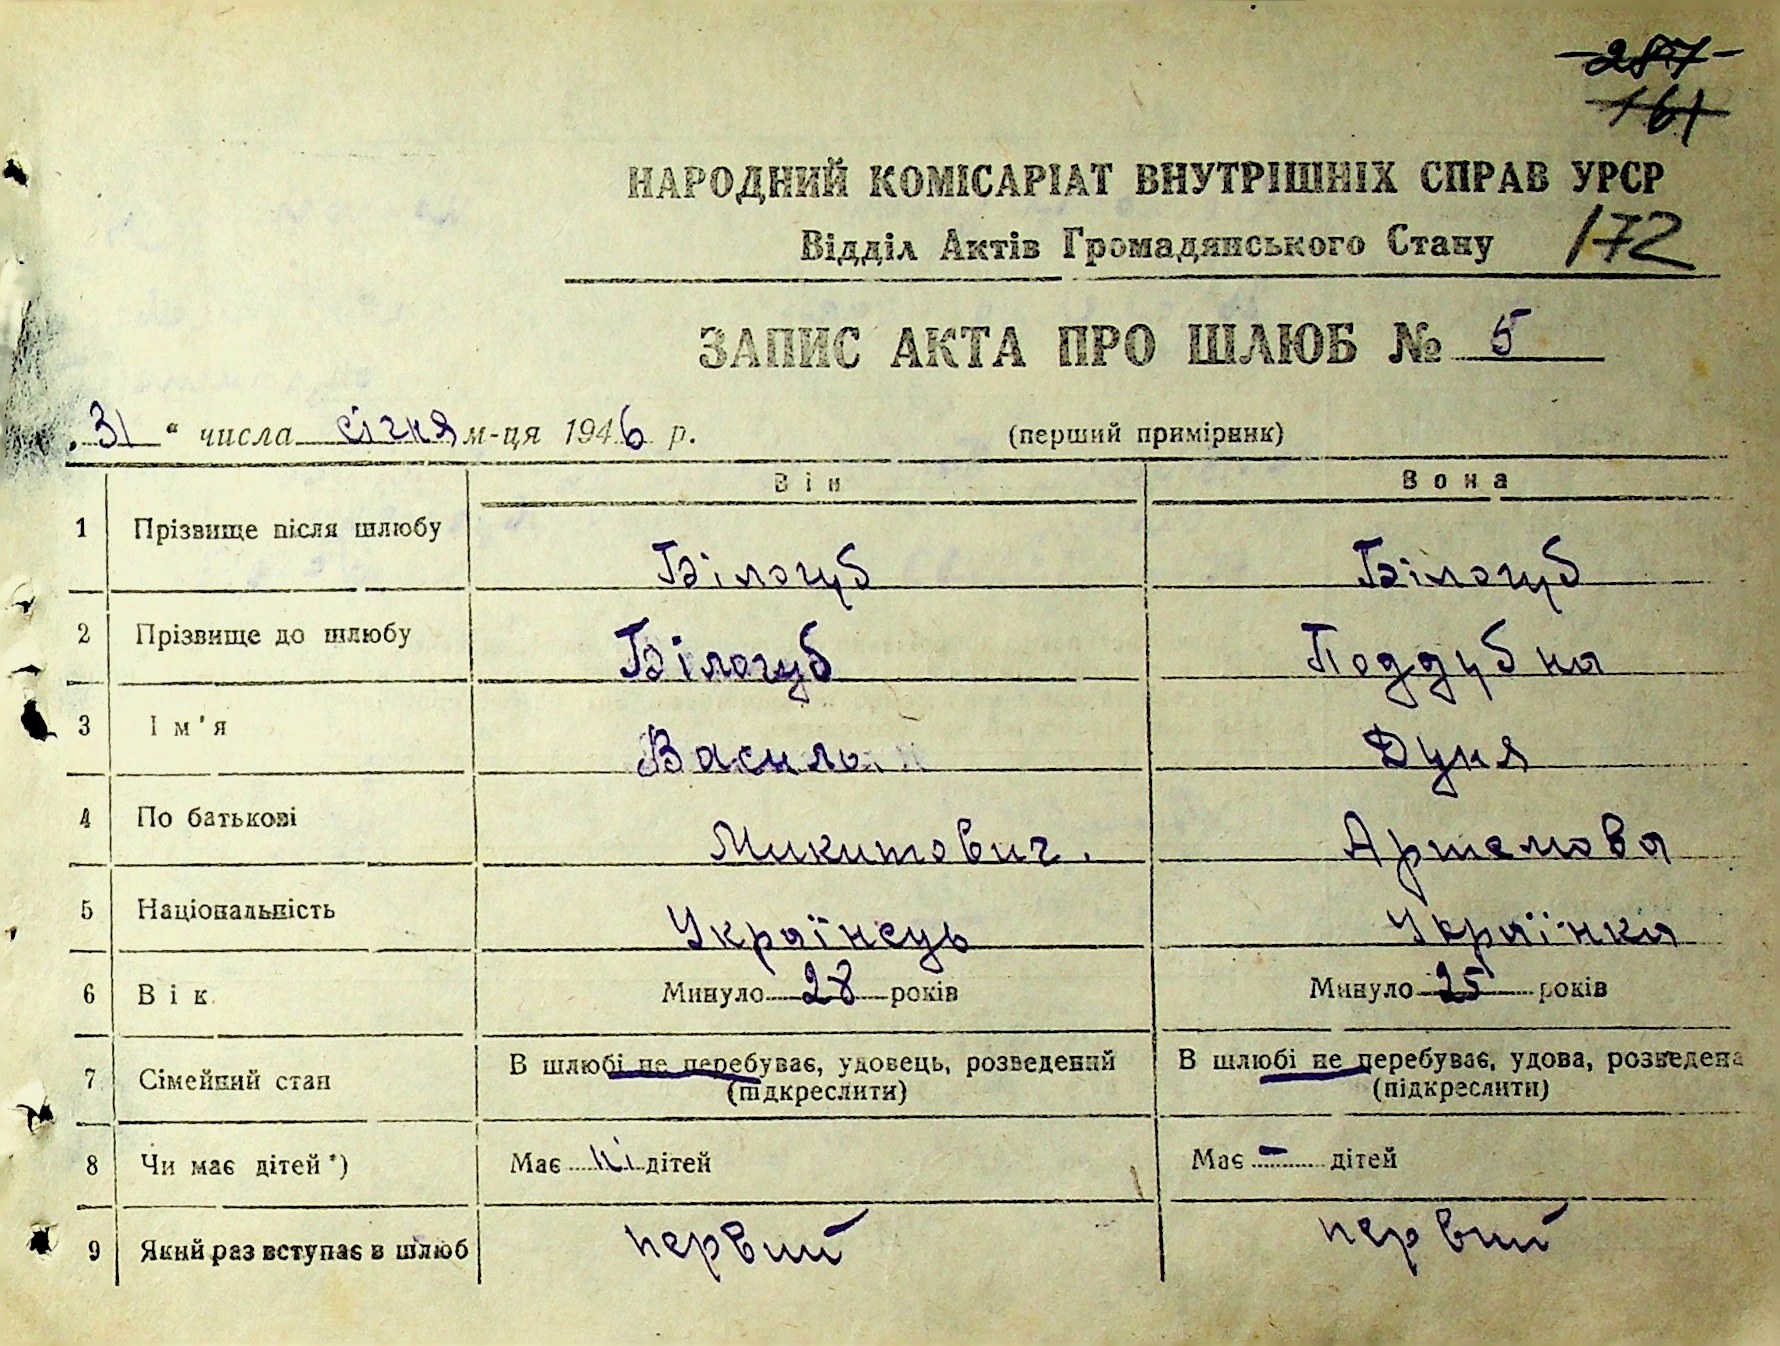 287
161
НАРОДНИЙ КОМІСАРІАТ ВНУТРІШНІХ СПРАВ УРСР
Відділ Актів Громадянського Стану 172
ЗАПИС АКТА ПРО ШЛЮБ № 5
„31“ числа січня м-ця 1946 р. (перший примірник)
Він Вона
1 Прізвище після шлюбу Білогуб Білогуб
2 Прізвище до шлюбу Білогуб Поддубна
3 Ім'я Василь Дуня
4 По батькові Микитович. Артемова
5 Національність Українець Українка
6 Вік Минуло 28 років Минуло 25 років
7 Сімейний стан В шлюбі не перебуває, удовець, розведений В шлюбі не перебуває, удова, розведена
(підкреслити) (підкреслити)
8 Чи має дітей*) Має ні дітей Має – дітей
9 Який раз вступає в шлюб первий первий